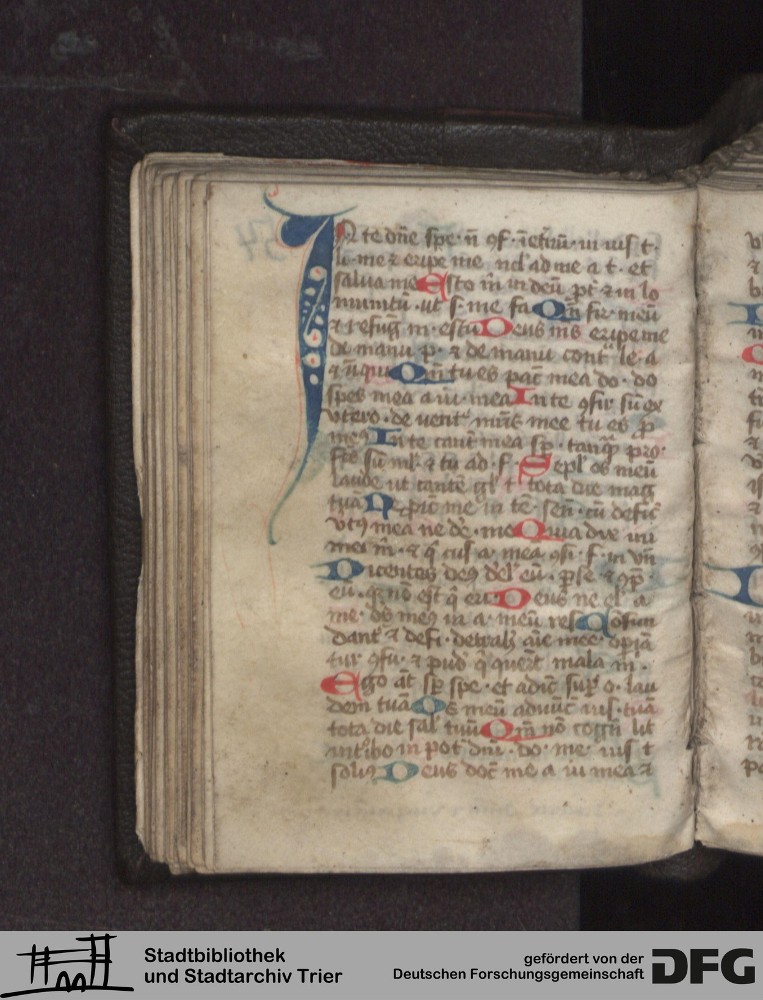 IN te dñe spe· ñ ꝯf· ī etnū· in ius t·
li· me ⁊ eripe me incl ad me a t· et
salua me Esto m̃ in deū pt ⁊ in lo
munitū· ut s· me fa Qm̃ fir· meū
⁊ refug̃ m· es tu Deus ms eripe me
de manu p· ⁊ de manu cont le· a
⁊ iniqui Qm̃ tu es pac̃ mea do· do
spes mea a iu· mea In te ꝯfir sū ex
vtero· de vent mr̃is mee tu es p̃
meꝰ In te cant̃ mea sp· tanqͣ pro·
fc̃s sū ml· ⁊ tu ad· f· Repl os meū
laude ut cante gl t· tota die mag
tuã Ne ꝓic me in te sen· cū defic̃
vtꝰ mea ne de· me Quia dix ini
mei m̃· ⁊ q̃ cus a· mea ꝯsi· f· in vñ
Dicentes deꝰ del eū· ꝑse ⁊ ꝯp̃·
eū· q· no est q̃ eri Deus ne el· a
me· ds meꝰ in a· meū res Cofun
dant̃ ⁊ defi· detrah aĩe mee· opiã
tur ꝯfu· ⁊ pud q̃ quert̃ mala m̃·
Ego āt sp̃ spe· et adic̃ suꝑ o· lau
dem tuã Os meū adnũc ius· tuã
tota die sal tuū Qm̃ nõ cogñ lit
int̃ibo in pot dñi· do· me· ius t
soliꝰ Deus doc̃ me a iu mea ⁊
Stadtbibliothek
und Stadtarchiv Trier
gefördert von der
Deutschen Forschungsgemeinschaft
DFG